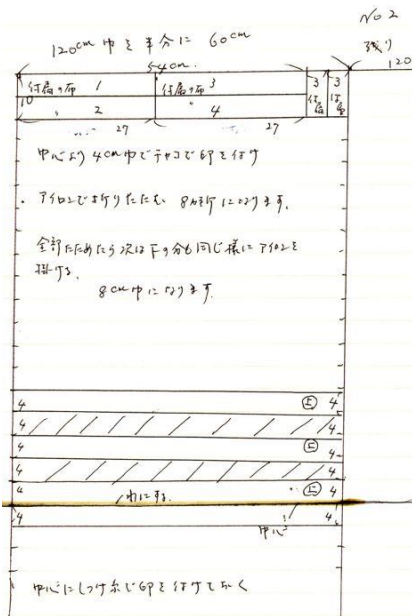 No 2
120cm 巾を半分に 60cm
残り
120
54cm.
付属の布 1
付属の布 3
3
3
付属
付属
10
〃 2
〃 4
27
27
中心より 4cm巾でチャコで印を付け
アイロンで折りたたむ 8カ所になります.
全部たためたら次は下の分も同じ様にアイロンを
掛ける.
8cm巾になります.
4 上 4
4 4
4 上 4
4 4
4 わにする. 上 4
4 4
中心
中心にしつけ糸で印を付けておく